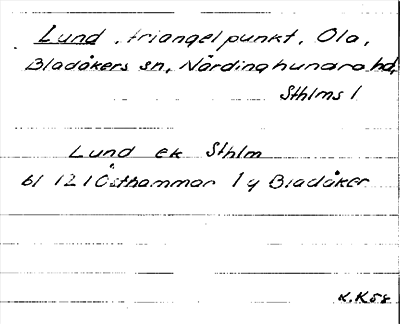 Lund, triangelpunkt, Ola,
Bladåkers sn, Närdinghundra hd,
Sthlms l
Lund ek Sthlm
bl 121 Östhammar 1 g Bladåker
K.K 58